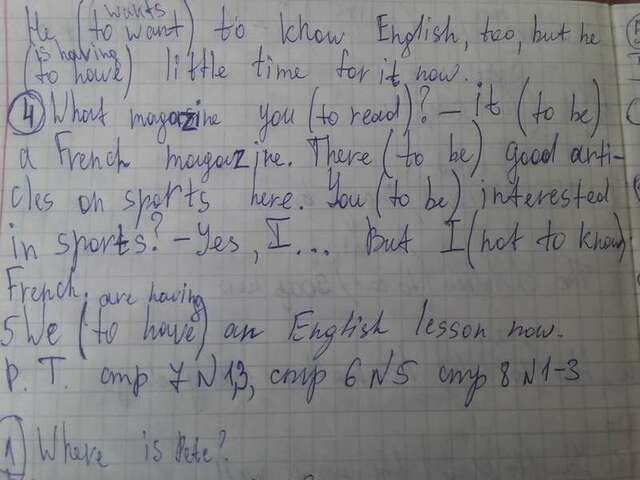 wants
He (to want) to know English, too, but he
is having
(to have) little time for it now.
4 What magazine you (to read)? – it (to be)
a French magazine. There (to be) good arti-
cles on sports here. You (to be) interested
in sports? – Yes, I... But I (not to know)
French.
are having
5 We (to have) an English lesson now.
Р. Т. стр 7 №1,3, стр 6 №5 стр 8 №1-3
1) Where is Pete?